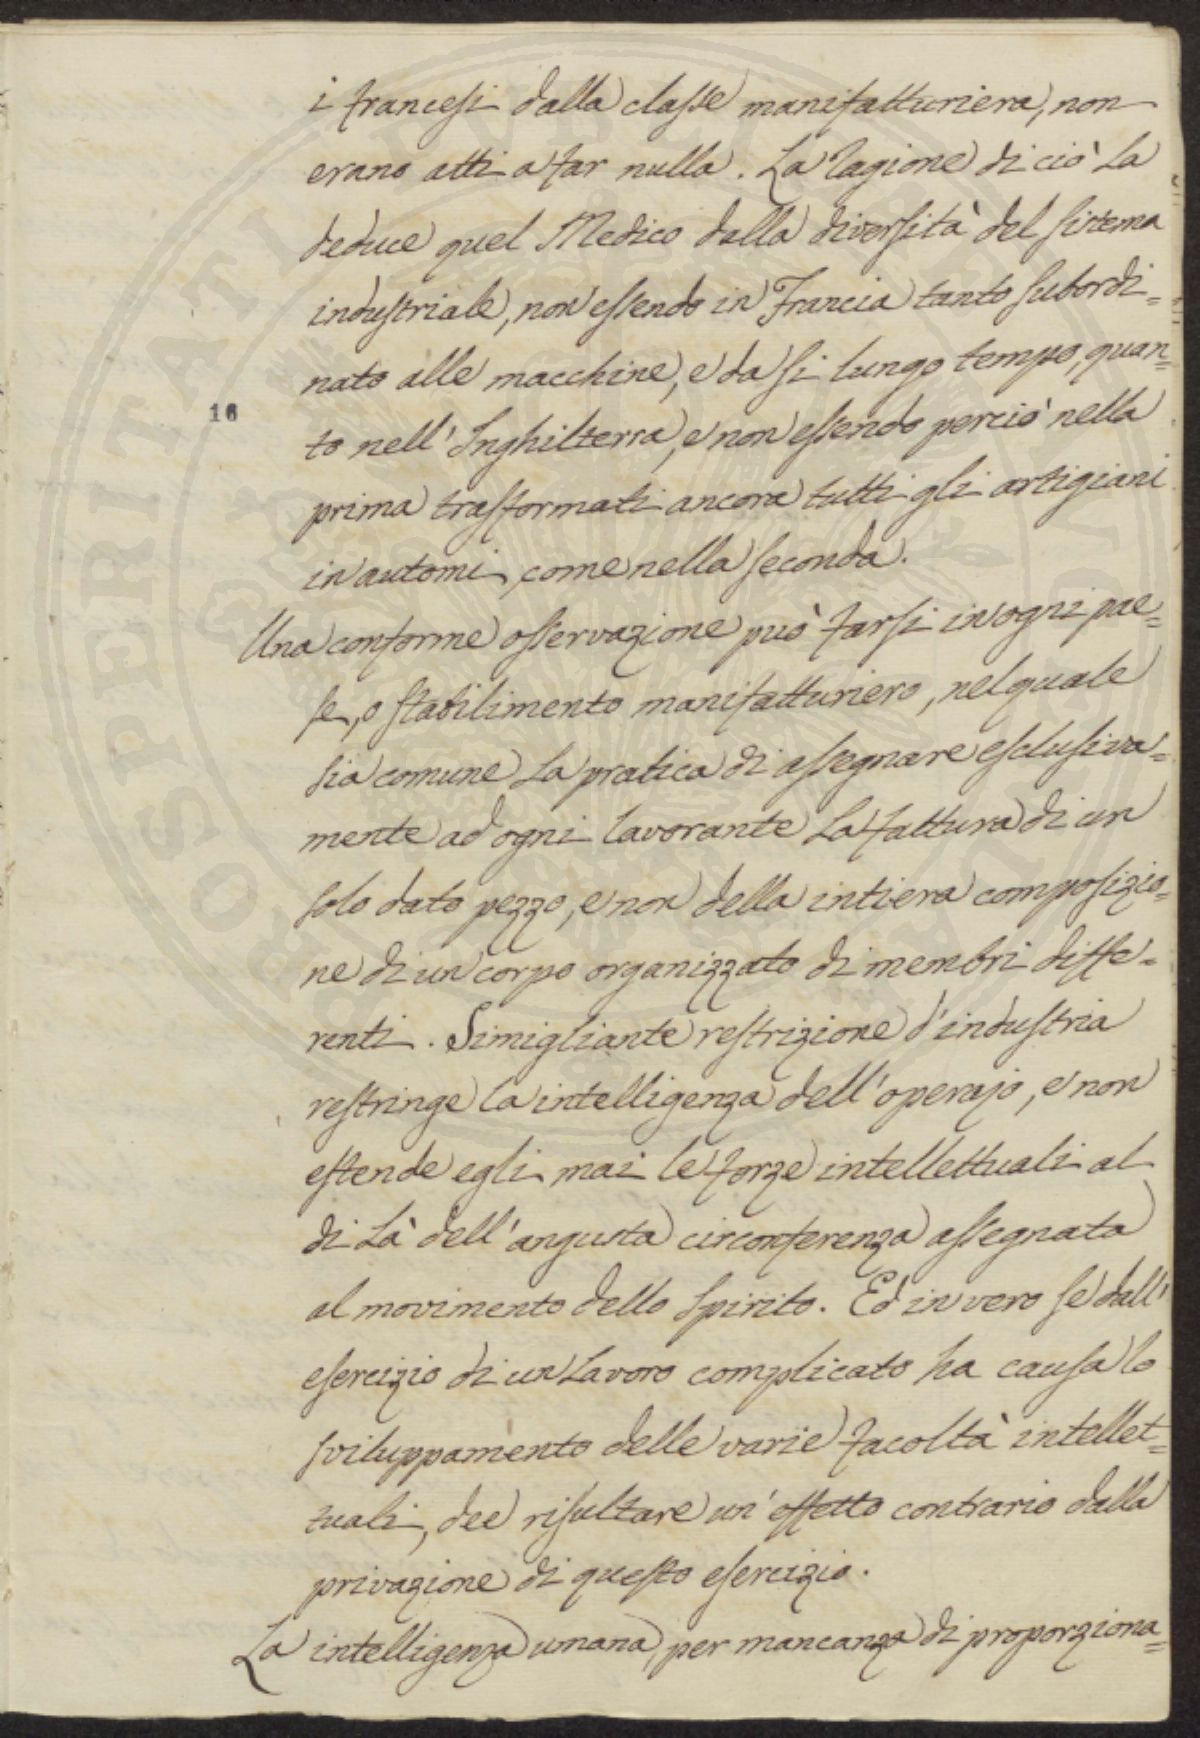 i francesi dalla classe manifatturiera, non
erano atti a far nulla. La ragione di ciò la
deduce quel Medico dalla diversità del sistema
industriale, non essendo in Francia tanto subordi=
nato alle macchine, e da si lungo tempo, quan=
16
to nell'Inghilterra, e non essendo perciò nella
prima trasformati ancora tutti gli artigiani
in automi, come nella seconda.
Una conforme osservazione può farsi in ogni pae=
se, o stabilimento manifatturiero, nel quale
sia comune la pratica di assegnare esclusiva=
mente ad ogni lavorante la fattura di un
solo dato pezzo, e non della intiera composizio=
ne di un corpo organizzato di membri diffe=
renti. Simigliante restrizione d'industria
restringe la intelligenza dell'operajo, e non
estende egli mai le forze intellettuali al
di là dell'angusta circonferenza assegnata
al movimento dello spirito. Ed in vero se dall'
esercizio di un lavoro complicato ha causa lo
sviluppamento delle varie facoltà intellet=
tuali, dee risultare un'effetto contrario dalla
privazione di questo esercizio.
La intelligenza umana, per mancanza di proporziona=